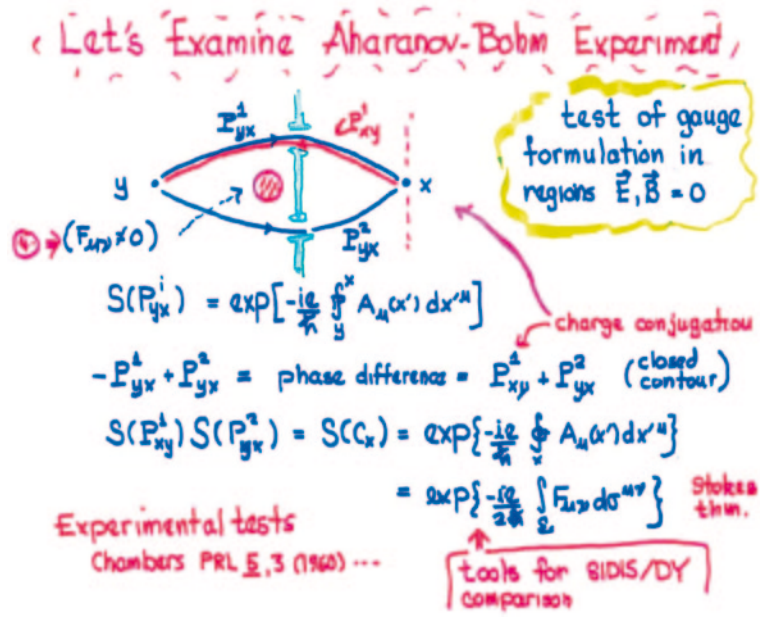 Let's Examine Aharanov-Bohm Experiment
P¹yx
P¹xy
test of gauge
formulation in
regions E⃗, B⃗ = 0
y
x
(Fμν ≠ 0)
P²yx
S(Pⁱyx) = exp[-ie/ħ ∮ʸˣ Aμ(x')dx'μ]
charge conjugation
-P¹yx + P²yx = phase difference = P¹xy + P²yx (closed contour)
S(P¹xy) S(P²yx) = S(Cx) = exp{-ie/ħ ∮x Aμ(x')dx'μ}
= exp{-ie/2ħ ∫Σ Fμν dσμν} Stokes thm.
Experimental tests
Chambers PRL 5, 3 (1960) ...
tools for SIDIS/DY
comparison